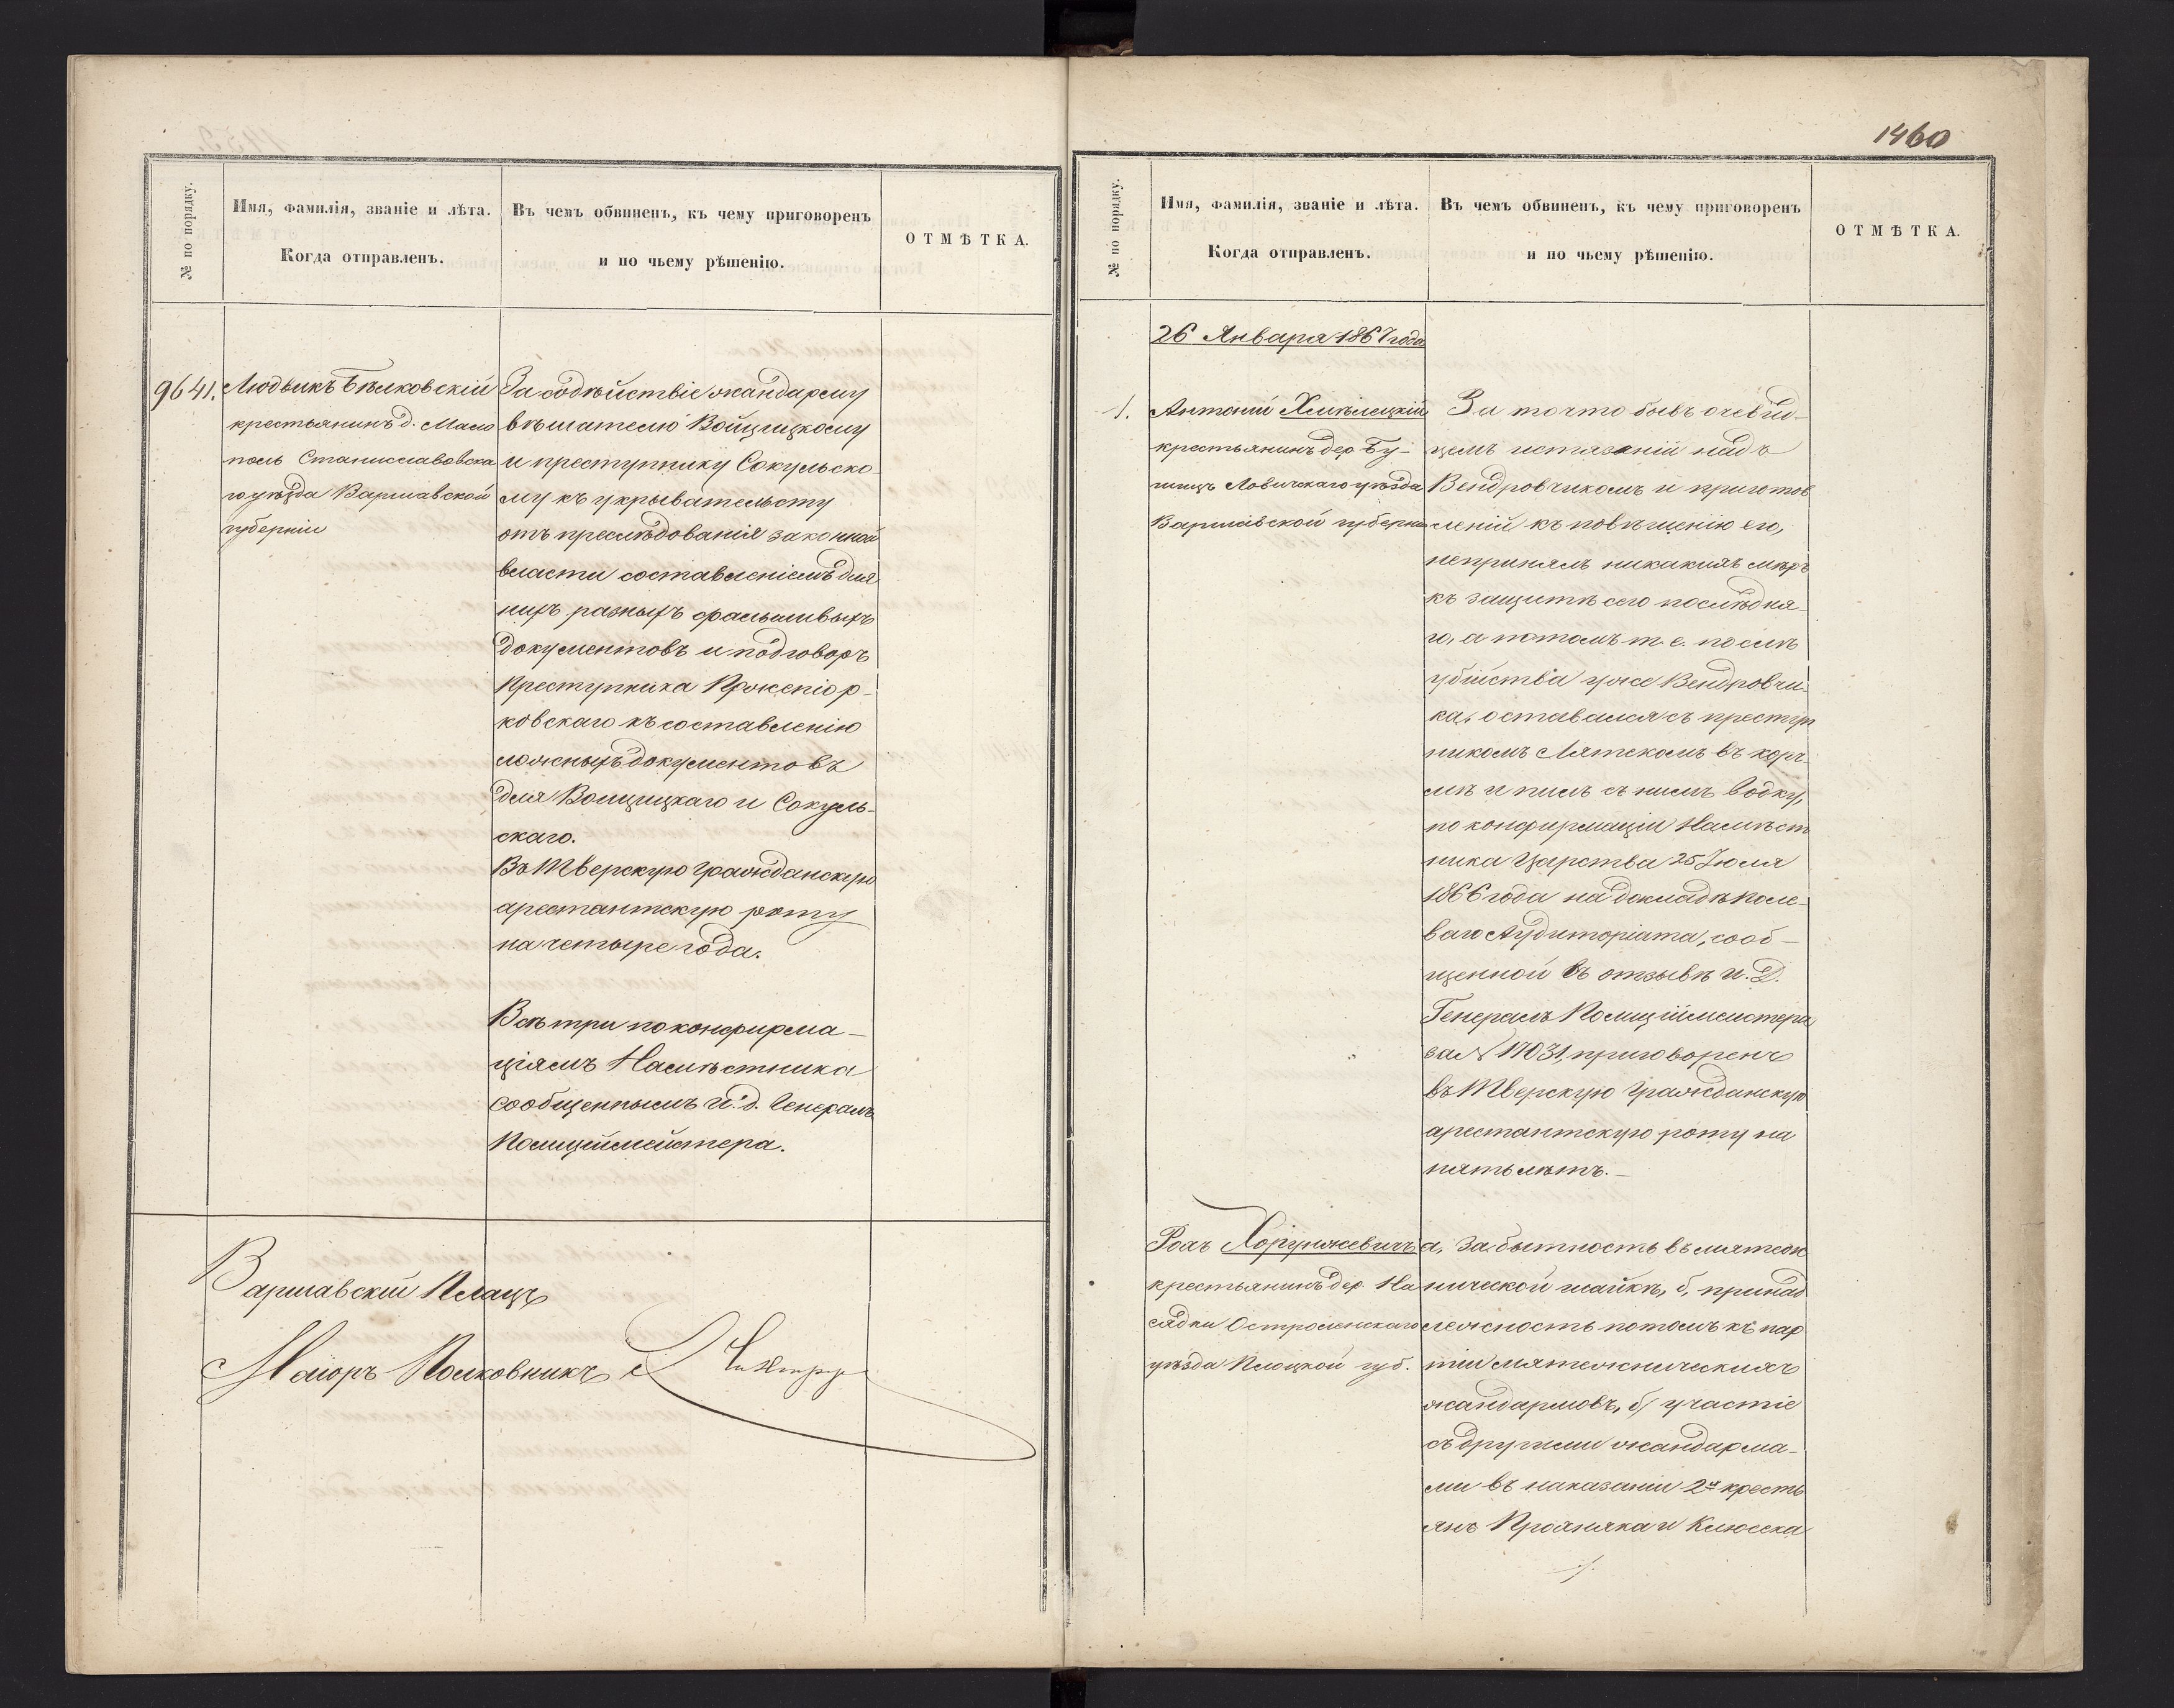 № по порядку.
Имя, фамилія, званіе и лѣта.
Когда отправленъ.
Въ чемъ обвиненъ, къ чему приговоренъ
и по чьему рѣшенію.
ОТМѢТКА.
9641.
Людвикъ Бѣлковскій
крестьянинъ д. Мало
поль Станиславовска
го уѣзда Варшавской
губерніи
За содѣйствіе жандарму
вѣшателю Войцицкому
и преступнику Сокульско
му къ укрывательству
отъ преслѣдованія законной
власти составленіемъ для
нихъ разныхъ фальшивыхъ
документовъ и подговоръ
преступника
ковскаго къ составленію
ложныхъ документовъ
для Войцицкаго и Сокуль-
скаго.
Въ Тверскую Гражданскую
арестантскую роту
на четыре года.
Всѣ три по конфирма-
ціямъ Намѣстника
сообщеннымъ И. д. Генералъ
Полицеймейстера.
Варшавскій Плацъ
Маіоръ Полковникъ
1460
№ по порядку.
Имя, фамилія, званіе и лѣта.
Когда отправленъ.
Въ чемъ обвиненъ, къ чему приговоренъ
и по чьему рѣшенію.
ОТМѢТКА.
26 Января 1867 года
1.
Антоній Хмѣлецкій
крестьянинъ дер. Бу-
шицъ Ловичскаго уѣзда
Варшавской губерніи
За то что бывъ очевид-
цемъ истязаній надъ
Вендровчикомъ и приготов
леній къ повѣшенію его,
непринялъ никакихъ мѣръ
къ защитѣ сего послѣдня-
го, а потомъ т. е. послѣ
убійства уже Вендровчи-
ка, оставался съ преступ
никомъ Лятскомъ въ корч-
мѣ и пилъ съ нимъ водку,
по конфирмаціи Намѣст
ника Царства 25 Іюля
1866 года на докладѣ Поле-
ваго Аудиторіата, сооб-
щенной въ отзывѣ И. Д.
Генералъ Полиціймейстера
за № 17031, приговоренъ
въ Тверскую Гражданскую
арестантскую роту на
пять лѣтъ.-
Рохъ Хорунжевичъ
крестьянинъ дер. На
садки Остроленскаго
уѣзда Плоцкой губ.
а, За бытность въ мятеж
нической шайкѣ, б, принад
лежность потомъ къ пар
тіи мятежническихъ
жандармовъ, б/ участіе
съ другими жандарма-
ми въ наказаніи 2хъ кресть
янъ и